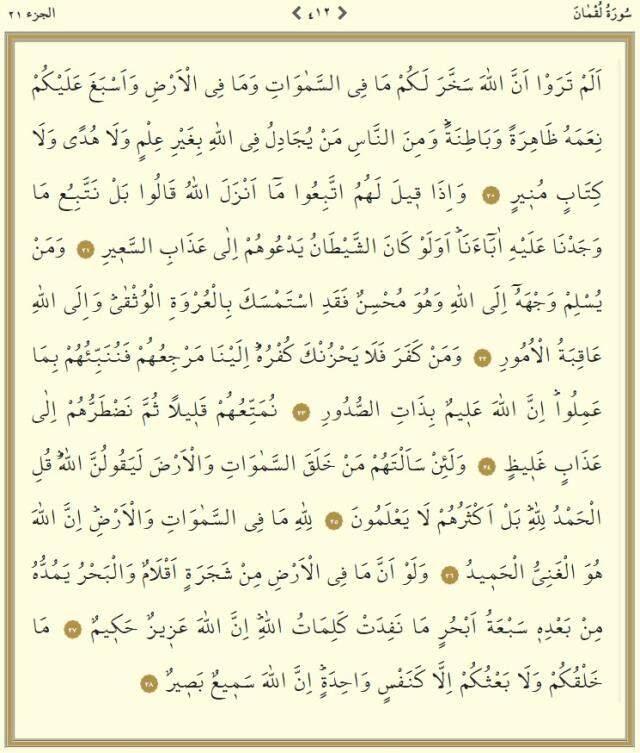 سُورَةُ لُقْمٰانَ ٤١٢ الجزء ٢١
اَلَمْ تَرَوْا اَنَّ اللّٰهَ سَخَّرَ لَكُمْ مَا فِى السَّمٰوَاتِ وَمَا فِى الْاَرْضِ وَاَسْبَغَ عَلَيْكُمْ
نِعَمَهُ ظَاهِرَةً وَبَاطِنَةًۜ وَمِنَ النَّاسِ مَنْ يُجَادِلُ فِى اللّٰهِ بِغَيْرِ عِلْمٍ وَلَا هُدًى وَلَا
كِتَابٍ مُنٖيرٍ ٢٠ وَاِذَا قٖيلَ لَهُمُ اتَّبِعُوا مَٓا اَنْزَلَ اللّٰهُ قَالُوا بَلْ نَتَّبِعُ مَا
وَجَدْنَا عَلَيْهِ اٰبَٓاءَنَاۜ اَوَلَوْ كَانَ الشَّيْطَانُ يَدْعُوهُمْ اِلٰى عَذَابِ السَّعٖيرِ ٢١ وَمَنْ
يُسْلِمْ وَجْهَهُٓ اِلَى اللّٰهِ وَهُوَ مُحْسِنٌ فَقَدِ اسْتَمْسَكَ بِالْعُرْوَةِ الْوُثْقٰىۜ وَاِلَى اللّٰهِ
عَاقِبَةُ الْاُمُورِ ٢٢ وَمَنْ كَفَرَ فَلَا يَحْزُنْكَ كُفْرُهُۜ اِلَيْنَا مَرْجِعُهُمْ فَنُنَبِّئُهُمْ بِمَا
عَمِلُواۜ اِنَّ اللّٰهَ عَلٖيمٌ بِذَاتِ الصُّدُورِ ٢٣ نُمَتِّعُهُمْ قَلٖيلًا ثُمَّ نَضْطَرُّهُمْ اِلٰى
عَذَابٍ غَلٖيظٍ ٢٤ وَلَئِنْ سَاَلْتَهُمْ مَنْ خَلَقَ السَّمٰوَاتِ وَالْاَرْضَ لَيَقُولُنَّ اللّٰهُۜ قُلِ
الْحَمْدُ لِلّٰهِۜ بَلْ اَكْثَرُهُمْ لَا يَعْلَمُونَ ٢٥ لِلّٰهِ مَا فِى السَّمٰوَاتِ وَالْاَرْضِۜ اِنَّ اللّٰهَ
هُوَ الْغَنِىُّ الْحَمٖيدُ ٢٦ وَلَوْ اَنَّ مَا فِى الْاَرْضِ مِنْ شَجَرَةٍ اَقْلَامٌ وَالْبَحْرُ يَمُدُّهُ
مِنْ بَعْدِهٖ سَبْعَةُ اَبْحُرٍ مَا نَفِدَتْ كَلِمَاتُ اللّٰهِۜ اِنَّ اللّٰهَ عَزٖيزٌ حَكٖيمٌ ٢٧ مَا
خَلْقُكُمْ وَلَا بَعْثُكُمْ اِلَّا كَنَفْسٍ وَاحِدَةٍۜ اِنَّ اللّٰهَ سَمٖيعٌ بَصٖيرٌ ٢٨